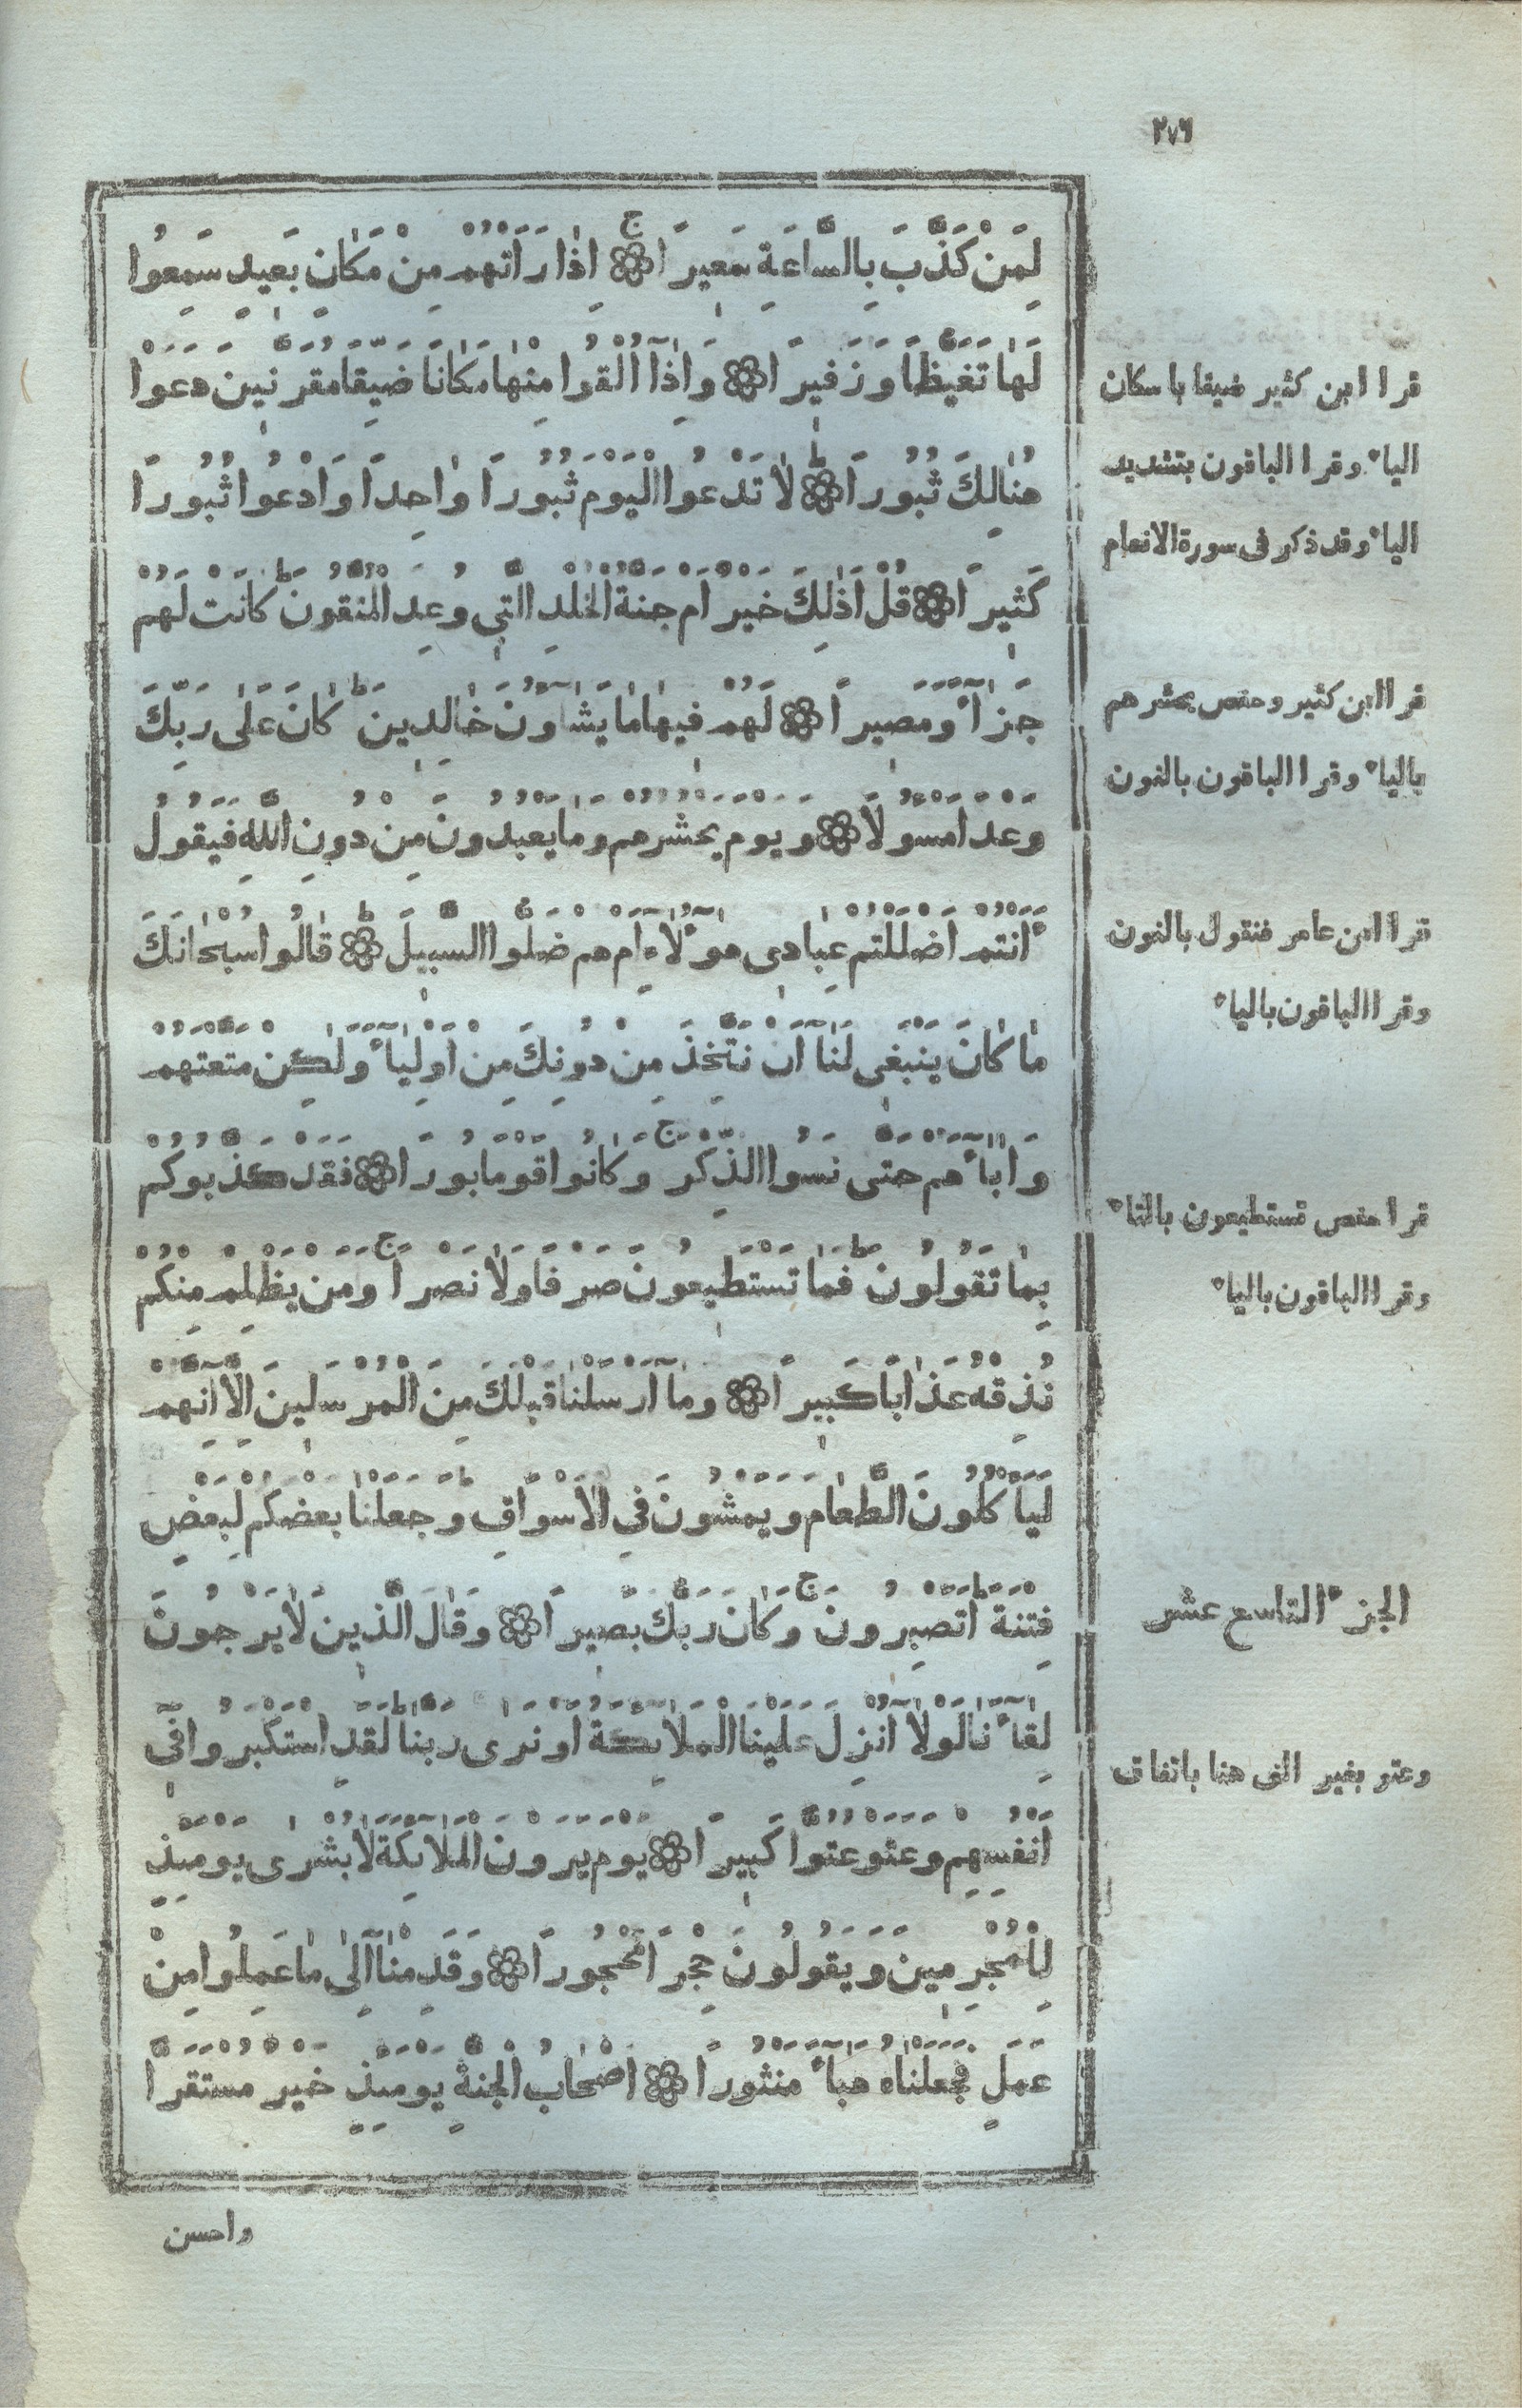 ٢٧٦
لِمَنْ كَذَّبَ بِالسَّاعَةِ سَعِيرًا ۞ ج اِذَا رَاَتْهُمْ مِنْ مَكَانٍ بَعِيدٍ سَمِعُوا
لَهَا تَغَيُّظًا وَزَفِيرًا ۞ وَاِذَآ اُلْقُوا مِنْهَا مَكَانًا ضَيِّقًا مُقَرَّنِينَ دَعَوْا
هُنَالِكَ ثُبُورًا ۞ ط لَا تَدْعُوا الْيَوْمَ ثُبُورًا وَاحِدًا وَادْعُوا ثُبُورًا
كَثِيرًا ۞ قُلْ اَذٰلِكَ خَيْرٌ اَمْ جَنَّةُ الْخُلْدِ الَّتِى وُعِدَ الْمُتَّقُونَ ط كَانَتْ لَهُمْ
جَزَآءً وَمَصِيرًا ۞ لَهُمْ فِيهَا مَا يَشَآوُنَ خَالِدِينَ ط كَانَ عَلٰى رَبِّكَ
وَعْدًا مَسْوُلًا ۞ وَيَوْمَ يَحْشُرُهُمْ وَمَا يَعْبُدُونَ مِنْ دُونِ اللّٰهِ فَيَقُولُ
ءَاَنْتُمْ اَضْلَلْتُمْ عِبَادِى هٰٓوُلَآءِ اَمْ هُمْ ضَلُّوا السَّبِيلَ ۞ ط قَالُوا سُبْحَانَكَ
مَا كَانَ يَنْبَغِى لَنَآ اَنْ نَتَّخِذَ مِنْ دُونِكَ مِنْ اَوْلِيَآءَ وَلٰكِنْ مَتَّعْتَهُمْ
وَاٰبَآءَهُمْ حَتّٰى نَسُوا الذِّكْرَ ج وَكَانُوا قَوْمًا بُورًا ۞ فَقَدْ كَذَّبُوكُمْ
بِمَا تَقُولُونَ ط فَمَا تَسْتَطِيعُونَ صَرْفًا وَلَا نَصْرًا ج وَمَنْ يَظْلِمْ مِنْكُمْ
نُذِقْهُ عَذَابًا كَبِيرًا ۞ وَمَآ اَرْسَلْنَا قَبْلَكَ مِنَ الْمُرْسَلِينَ اِلَّآ اِنَّهُمْ
لَيَاْكُلُونَ الطَّعَامَ وَيَمْشُونَ فِى الْاَسْوَاقِ ط وَجَعَلْنَا بَعْضَكُمْ لِبَعْضٍ
فِتْنَةً ط اَتَصْبِرُونَ ج وَكَانَ رَبُّكَ بَصِيرًا ۞ وَقَالَ الَّذِينَ لَا يَرْجُونَ
لِقَآءَنَا لَوْلَآ اُنْزِلَ عَلَيْنَا الْمَلَآئِكَةُ اَوْ نَرٰى رَبَّنَا ط لَقَدِ اسْتَكْبَرُوا فِىٓ
اَنْفُسِهِمْ وَعَتَوْ عُتُوًّا كَبِيرًا ۞ يَوْمَ يَرَوْنَ الْمَلَآئِكَةَ لَا بُشْرٰى يَوْمَئِذٍ
لِلْمُجْرِمِينَ وَيَقُولُونَ حِجْرًا مَحْجُورًا ۞ وَقَدِمْنَآ اِلٰى مَا عَمِلُوا مِنْ
عَمَلٍ فَجَعَلْنَاهُ هَبَآءً مَنْثُورًا ۞ اَصْحَابُ الْجَنَّةِ يَوْمَئِذٍ خَيْرٌ مُسْتَقَرًّا
واحسن
قرا ابن كثير ضيقا باسكان
الياء وقرا الباقون بتشديد
الياء وقد ذكر فى سورة الانعام
قرا ابن كثير وحفص يحشرهم
بالياء وقرا الباقون بالنون
قرا ابن عامر فنقول بالنون
وقرا الباقون بالياء
قرا حفص تستطيعون بالتاء
وقرا الباقون بالياء
الجزء التاسع عشر
وعتو بغير الف هنا باتفاق